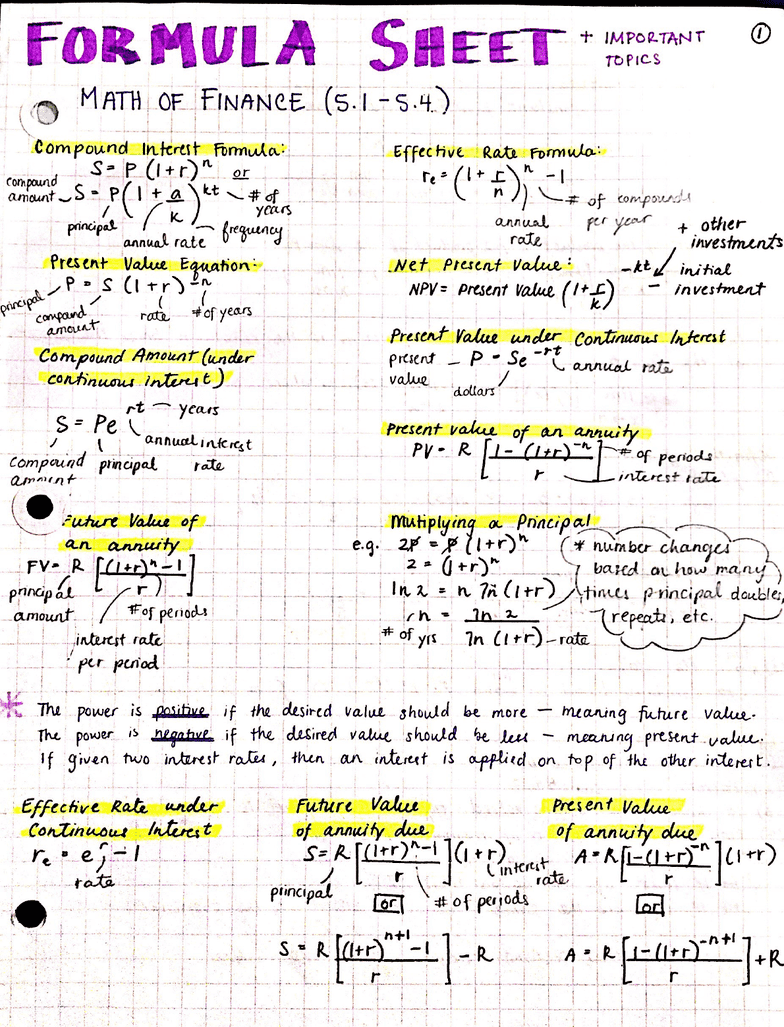 FORMULA SHEET + IMPORTANT TOPICS ①
MATH OF FINANCE (5.1 - 5.4)
Compound Interest Formula:
S = P (1+r)^n or
compound amount
S = P(1 + a/k)^kt
# of years
principal
annual rate
frequency
Present Value Equation:
P = S (1+r)^-n
principal
compound amount
rate
# of years
Compound Amount (under
continuous interest)
S = Pe^rt
years
annual interest rate
compound amount
principal
Future Value of
an annuity
FV = R [(1+r)^n - 1 / r]
principal amount
# of periods
interest rate
per period
Effective Rate Formula:
re = (1 + r/n)^n - 1
# of compounds
per year
annual rate
+ other investments
Net Present Value:
NPV = Present Value (1 + r/k)^-kt - initial investment
Present Value under Continuous Interest
present value
P = Se^-rt
annual rate
dollars
Present value of an annuity
PV = R [1 - (1+r)^-n / r]
# of periods
interest rate
Mutiplying a Principal
e.g. 2P = P (1+r)^n
2 = (1+r)^n
ln 2 = n ln (1+r)
n = ln 2 / ln (1+r)
# of yrs
rate
* number changes
based on how many
times principal doubles,
repeats, etc.
* The power is positive if the desired value should be more - meaning future value.
The power is negative if the desired value should be less - meaning present value.
If given two interest rates, then an interest is applied on top of the other interest.
Effective Rate under
Continuous Interest
re = e^r - 1
rate
Future Value
of annuity due
S = R [(1+r)^n - 1 / r] (1+r)
principal
interest rate
# of periods
or
S = R [(1+r)^n+1 - 1 / r] - R
Present Value
of annuity due
A = R [1 - (1+r)^-n / r] (1+r)
or
A = R [1 - (1+r)^-n+1 / r] + R